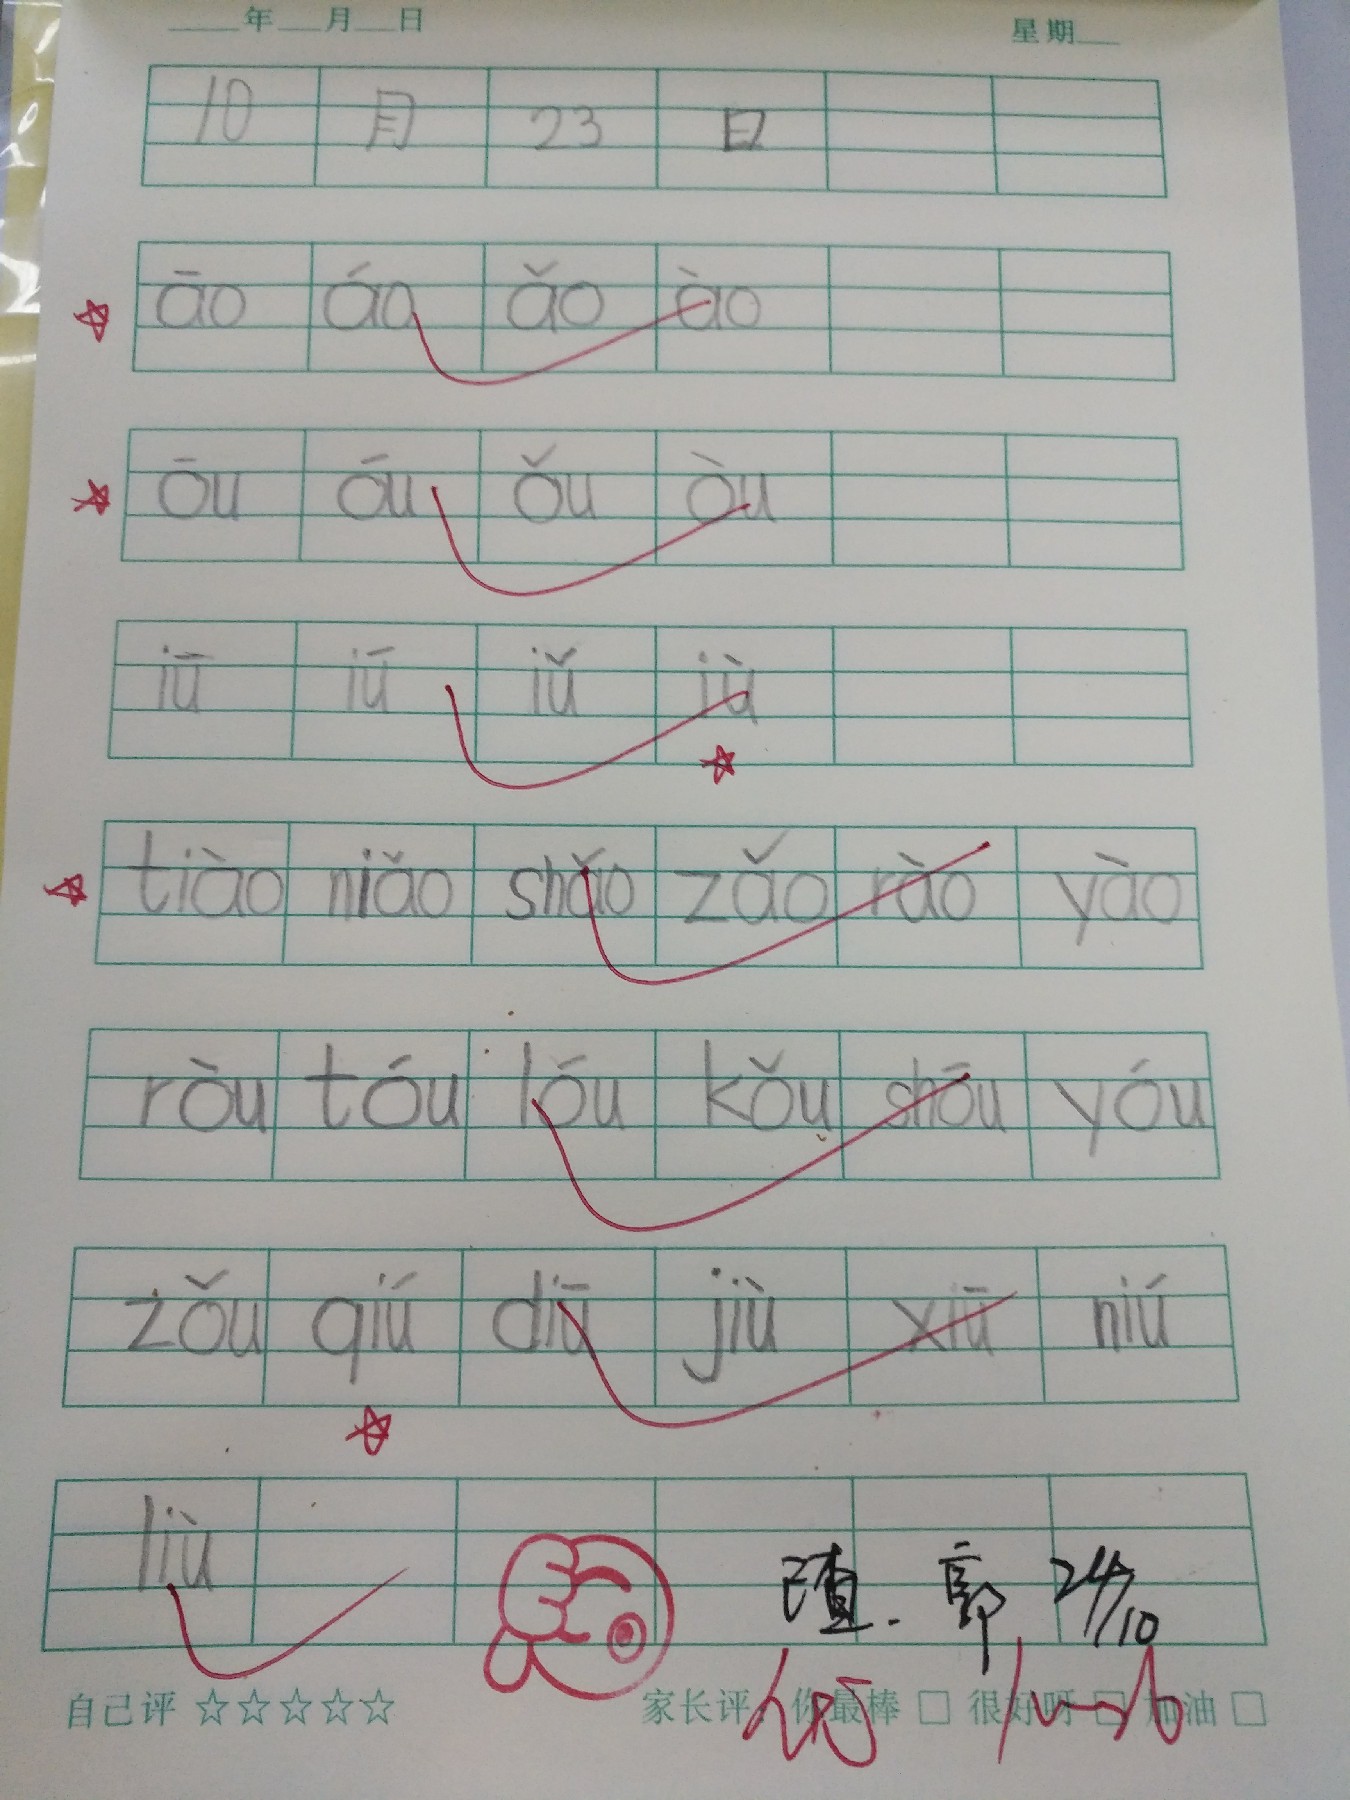 年 月 日 星期
10 月 23 日
āo áo ǎo ào
ōu óu ǒu òu
iū iú iǔ iù
tiào niǎo shǎo zǎo rào yào
ròu tóu lóu kǒu shōu yóu
zǒu qiú diū jiù xiū niú
liù
郭 24/10
自己评 ☆☆☆☆☆ 家长评：你最棒 □ 很好呀 □ 加油 □